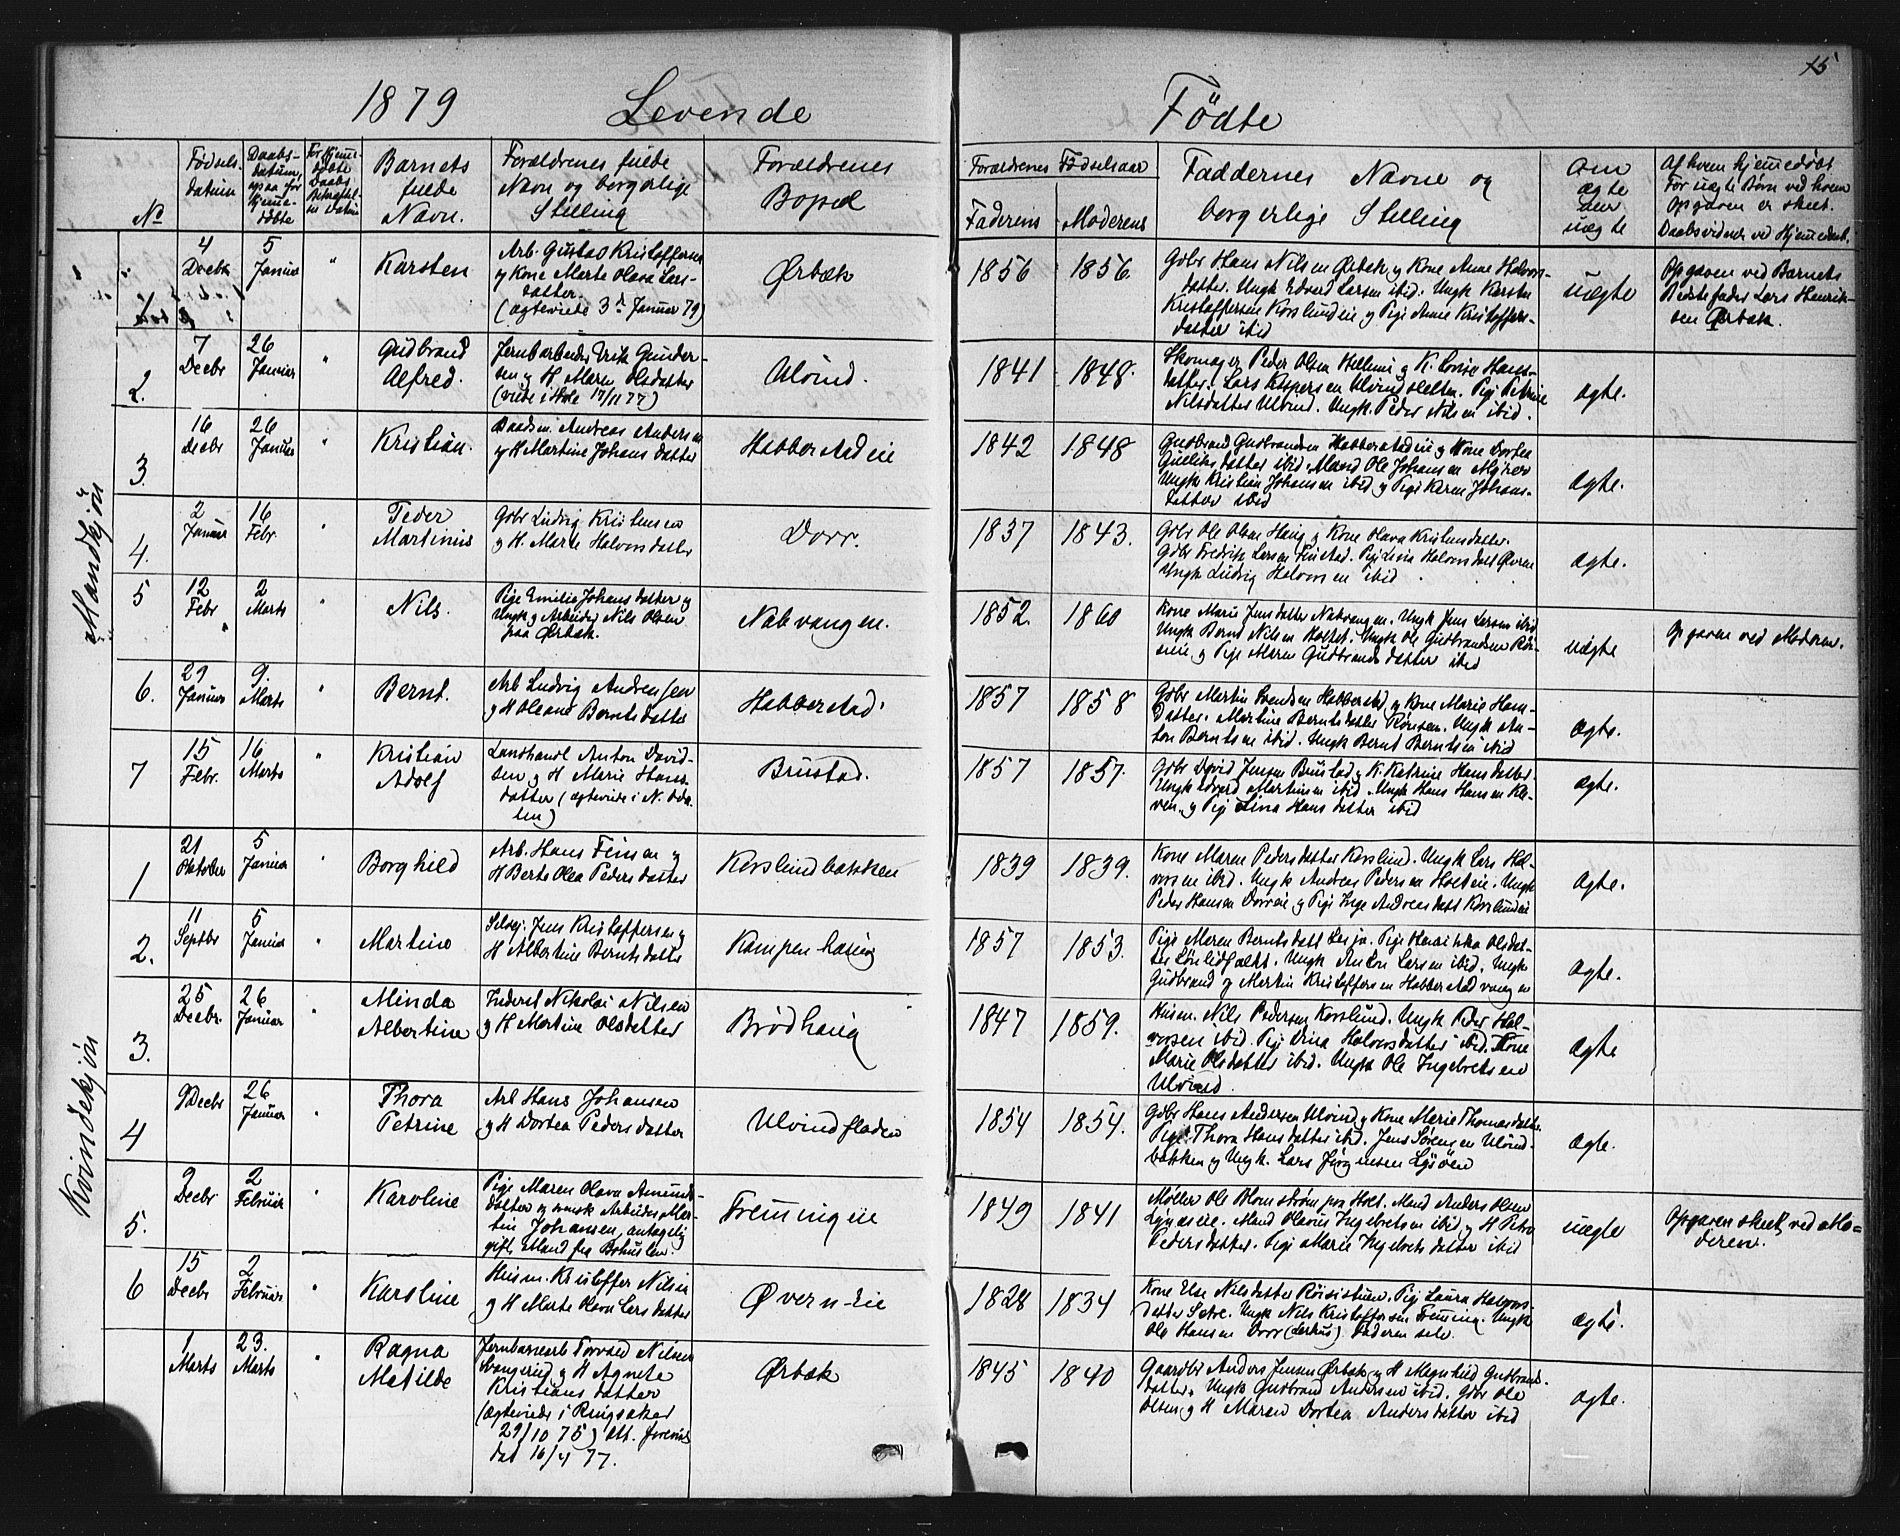 15
1879 Levende Födte
No
Fødsels datum
Daabs-datum, ogsaa for hjemmedøbte
For hjemmedøbte Daabs Bekræftelses Datum
Barnets fulde Navn.
Forældrenes fulde Navn og borgerlige Stilling
Forældrenes Bopæl
Forældrenes Fødselsaar
Faderens
Moderens
Faddernes Navne og borgerlige Stilling
Om ægte eller uægte
Af hvem hjemmedøbt
For uægte Børn ved hvem
Opgaven er skeet.
Daabsvidner ved Hjemmedaab.
Mandkjön
4 Decbr
5 Januar
"
Karsten
Arb. Gustav Kristoffersen
og Kone Marte Olava Lars-
datter.
(ægteviede 3d Januar 79)
Ørbæk
1856
1856.
Gdbr Hans Nilsen Ørbæk og Kone Anne Halvors-
datter. Ungk Edvard Larsen ibid. Ungk Karsten
Kristoffersen Korslundeie og Pige Anne Kristoffers-
datter ibid
uægte
Opgaven ved Barnets
Bedstefader Lars Henrik-
sen Ørbæk.
2.
7 Decbr
26 Januar
"
Gudbrand
Alfred.
Jernbarbeider Erik Gunder-
sen og H. Maren Olsdatter
(viede i Hole 17/11 77)
Ulvind.
1841
1848.
Skomager Peder Olsen Hellemi og K. Lovise Hans-
datter. Lars Kaspersen Ulvindsletten. Pige Petrine
Nilsdatter Ulvind. Ungk. Peder Nilsen ibid.
ægte.
3.
16 Decbr
26 Januar
"
Kristian.
Baadsm. Andreas Andersen
og H Martine Johansdatter
Habberstadeie
1842
1848
Gudbrand Gudbrandsen Habberstadeie og Kone Dortea
Gulliksdatter ibid. Mand Ole Johansen Myhrer
Ungk Kristian Johansen ibid og Pige Karen Johans-
datter ibid
ægte.
4.
2 Januar
16 Febr.
"
Peder
Martinius
Gdbr Ludvig Kristensen
og H. Marte Halvorsdatter
Dorr.
1837
1843.
Gdbr Ole Olsen Haug og Kone Olava Kristensdatter.
Gdbr Fredrik Larsen Finstad. Pige Lina Halvorsdatt Øveren
Ungk Ludvig Halvorsen ibid
ægte.
5
12 Febr
2 Marts
"
Nils.
Pige Emilie Johansdatter og
Ungk og Arbeider Nils Olsen
paa Ørbæk.
Nabvangen.
1852.
1860
Kone Marie Jensdatter Nabvangen. Ungk Jens Larsen ibid
Ungk Bernt Nilsen Holtet. Ungk Ole Gudbrandsen Røi-
seie og Pige Maren Gudbrandsdatter ibid
uægte
Opgaven ved Moderen.
6.
29 Januar
9. Marts
"
Bernt.
Arb Ludvig Andreasen
og H Oleane Berntsdatter
Habberstad.
1857
1858
Gdbr Martin Svendsen Habberstad og Kone Marie Hans-
datter. Martine Berntsdatter Rønsen. Ungk An-
ton Berntsen ibid. Ungk Bernt Berntsen ibid
ægte.
7
15 Febr.
16 Marts
"
Kristian
Adolf
Landhandl Anton David-
sen og H Marie Hans-
datter (ægteviede i N. Oda-
len)
Brustad.
1857
1857.
Gdbr David Jensen Brustad og K. Katrine Hansdatter
Ungk Edvard Martinsen ibid. Ungk Hans Hansen Kle-
ven og Pige Lina Hansdatter ibid
ægte.
Kvindekjön
1
21 Oktober
5 Januar
"
Borghild
Arb. Hans Finsen og
H Berte Olea Pedersdatter
Korslundbakken
1839
1839.
Kone Maren Pedersdatter Korslund. Ungk Lars Hal-
vorsen ibid. Ungk Andreas Pedersen Holteie. Ungk
Peder Hansen Dorreie og Pige Inge Andreasdatt Korslundeie
ægte.
2.
11 Septbr
5 Januar
"
Martine
Selvej. Jens Kristoffersen og
H Albertine Berntsdatter
Kampenhaug
1857
1853.
Pige Maren Berntsdatt Lesja. Pige Henrikka Olsdat-
ter Lönlidfaldet. Ungk Anton Larsen ibid. Ungk
Gudbrand og Martin Kristoffersen Habberstadvangen
ægte.
3.
25 Decbr.
26 Januar
"
Minda
Albertine
Inderst Nikolai Nilsen
og H Martine Olsdatter
Brødhaug
1847
1859.
Husm. Nils Pedersen Korslund. Ungk Peder Hal-
vorsen ibid. Pige Dina Halvorsdatter ibid. Kone
Marie Olsdatter ibid. Ungk Ole Ingebretsen
Ulvind.
ægte
4
9 Decbr
26 Januar
"
Thora
Petrine
Arb Hans Johansen
og H Dortea Pedersdatter
Ulvindfladen
1854
1854.
Gdbr Hans Andersen Ulvind og Kone Marie Thomasdatter.
Pige Thora Hansdatter ibid. Jens Sørensen Ulvind-
bakken og Ungk. Lars Jørgensen Lysöen
ægte.
5.
2 Decbr
2 Februar
"
Karoline
Pige Maren Olava Amunds-
datter og svensk Arbeider Mar-
tin Johansen, antagelig
gift Mand fra Bohuslen.
Fremmingeie
1849
1841
Møller Ole Blomstrøm paa Holt. Mand Anders Olsen
Lynæseie. Mand Olavus Ingebretsen ibid og H Petra
Pedersdatter. Pige Marie Ingebretsdatter ibid
uægte
Opgaven skeet ved Mo-
deren.
6
15 Decbr
2 Februar
"
Karoline
Husm. Kristoffer Nilsen
og H Marte Olava Larsdatter
Øvern-Eie
1828
1834
Kone Else Nilsdatter Röisistuen. Pige Laura Halvors-
datter Sætre. Ungk Nils Kristoffersen Fremming. Ungk
Ole Hansen Dorr (Lerhus) Faderen selv.
ægte.
1 Marts
23. Marts
"
Ragna
Matilde
Jernbanearb Torvald Nilsen
Svangerud og H Agnete
Kristiansdatter
(ægteviede i Ringsaker
29/10 75) Att. forevist
dat 16/4 77.
Ørbæk
1845
1840
Gaardbr Anders Jensen Ørbæk og H Magnhild Gudbrands-
datter. Ungk Gudbrand Andersen ibid. Gdbr Ole
Olsen og H Maren Dortea Andersdatter ibid
ægte.